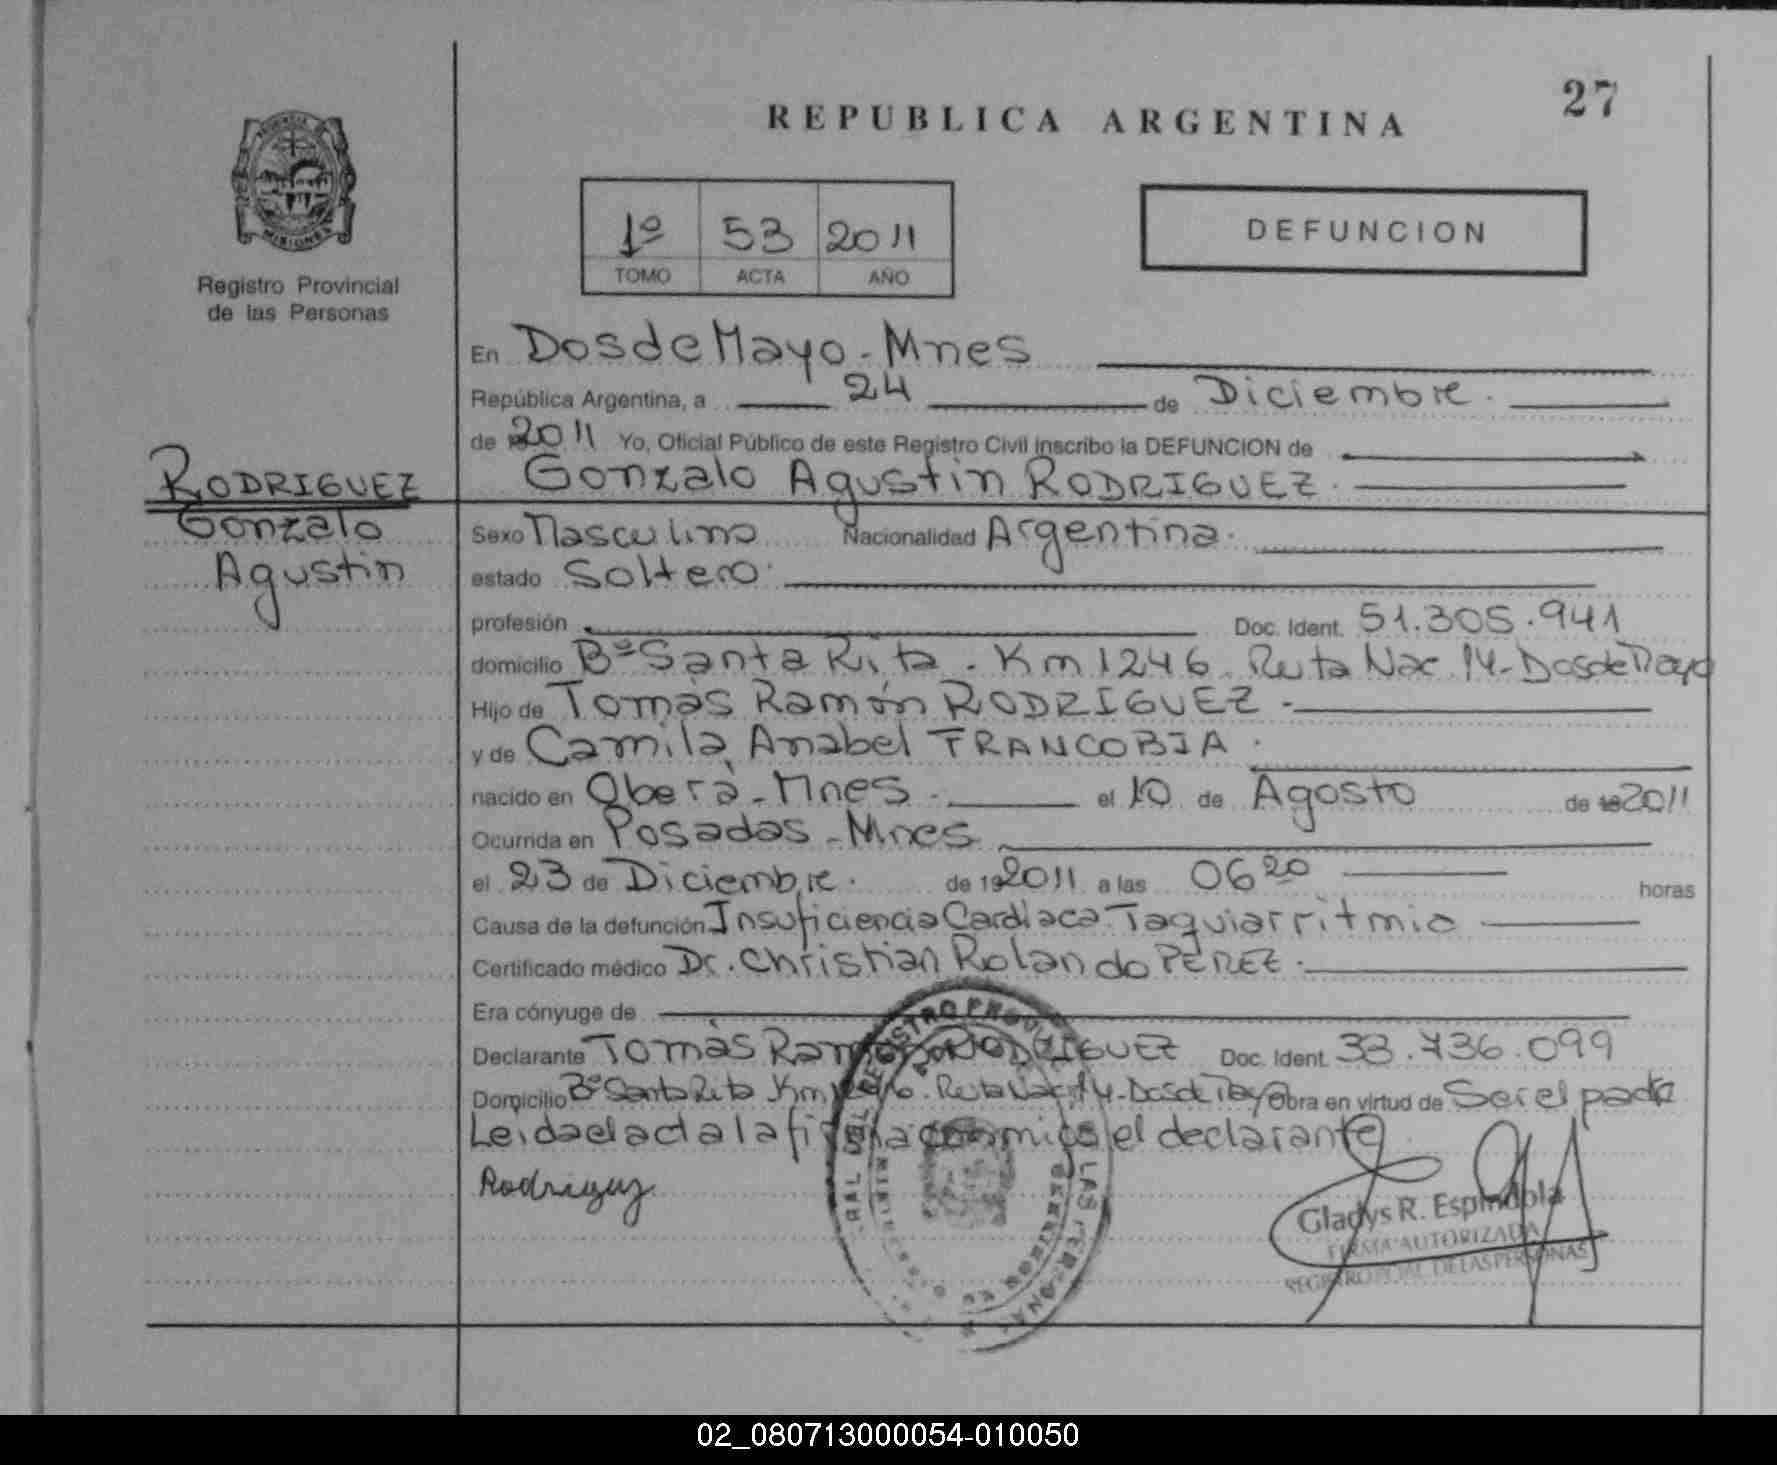 27
REPUBLICA ARGENTINA
1º 53 2011
TOMO ACTA AÑO
DEFUNCION
MISIONES
Registro Provincial
de las Personas
En Dos de Mayo - Mnes
República Argentina, a 24 de Diciembre.
de 2011 Yo, Oficial Público de este Registro Civil inscribo la DEFUNCION de
RODRIGUEZ
Gonzalo
Agustin
Gonzalo Agustin RODRIGUEZ.
Sexo Masculino Nacionalidad Argentina.
estado Soltero.
profesión Doc. Ident. 51.305.941
domicilio Bº Santa Rita - Km 1246. Ruta Nac. 14 - Dos de Mayo
Hijo de Tomás Ramón RODRIGUEZ -
y de Camila Anabel FRANCOBIA.
nacido en Oberá - Mnes. el 10 de Agosto de 2011
Ocurrida en Posadas - Mnes
el 23 de Diciembre. de 2011 a las 06 20 horas
Causa de la defunción Insuficiencia Cardiaca Taquiarritmia
Certificado médico Dr. Christian Rolando PEREZ.
Era cónyuge de
Declarante Tomás Ramón RODRIGUEZ Doc. Ident. 33.736.099
Domicilio Bº Santa Rita Km 1246. Ruta Nac. 14 - Dos de Mayo Obra en virtud de Ser el padre
Leida el acta la firma conmigo el declarante
Rodriguez
Gladys R. Espindola
FIRMA AUTORIZADA
REGISTRO PCIAL DE LAS PERSONAS
02_080713000054-010050